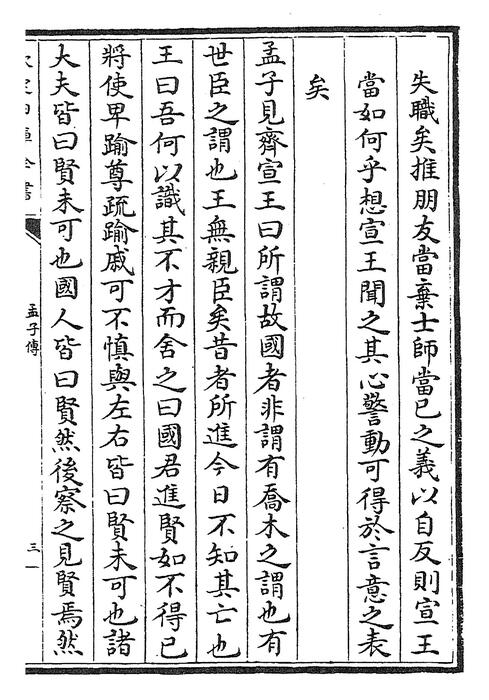 失職矣推朋友當棄士師當已之義以自反則宣王
當如何乎想宣王聞之其心警動可得於言意之表
矣
孟子見齊宣王曰所謂故國者非謂有喬木之謂也有
世臣之謂也王無親臣矣昔者所進今日不知其亡也
王曰吾何以識其不才而舍之曰國君進賢如不得已
將使卑踰尊疏踰戚可不慎與左右皆曰賢未可也諸
大夫皆曰賢未可也國人皆曰賢然後察之見賢焉然
欽定四庫全書
孟子傳
三